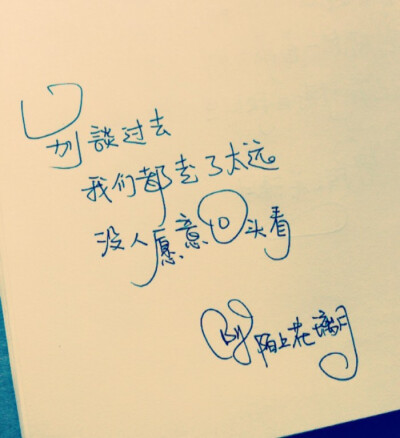 别談过去
我们都走了太远
没人愿意回头看
By 陌上花璃月